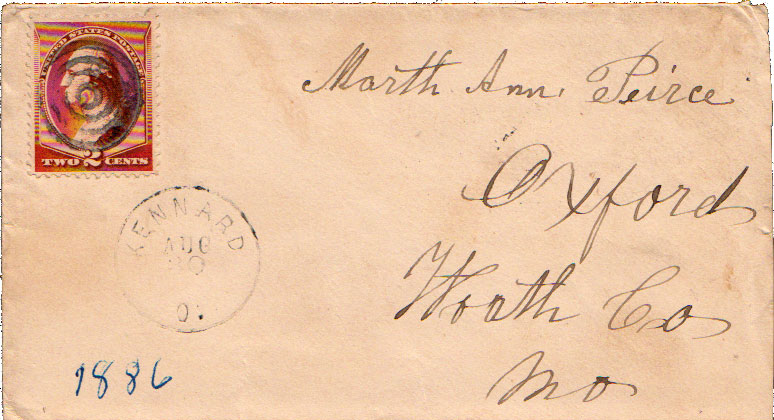 UNITED STATES POSTAGE
TWO 2 CENTS
Marth Ann Peirce
Oxford
Worth Co
Mo
KENNARD
AUG
30
O.
1886